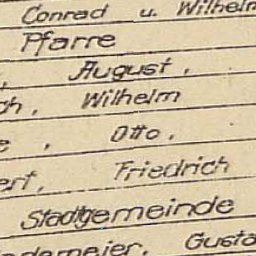 Conrad u. Wilhelm
Pfarre
, August,
ch, Wilhelm
e, Otto,
ert, Friedrich
Stadtgemeinde
demeier, Gusta